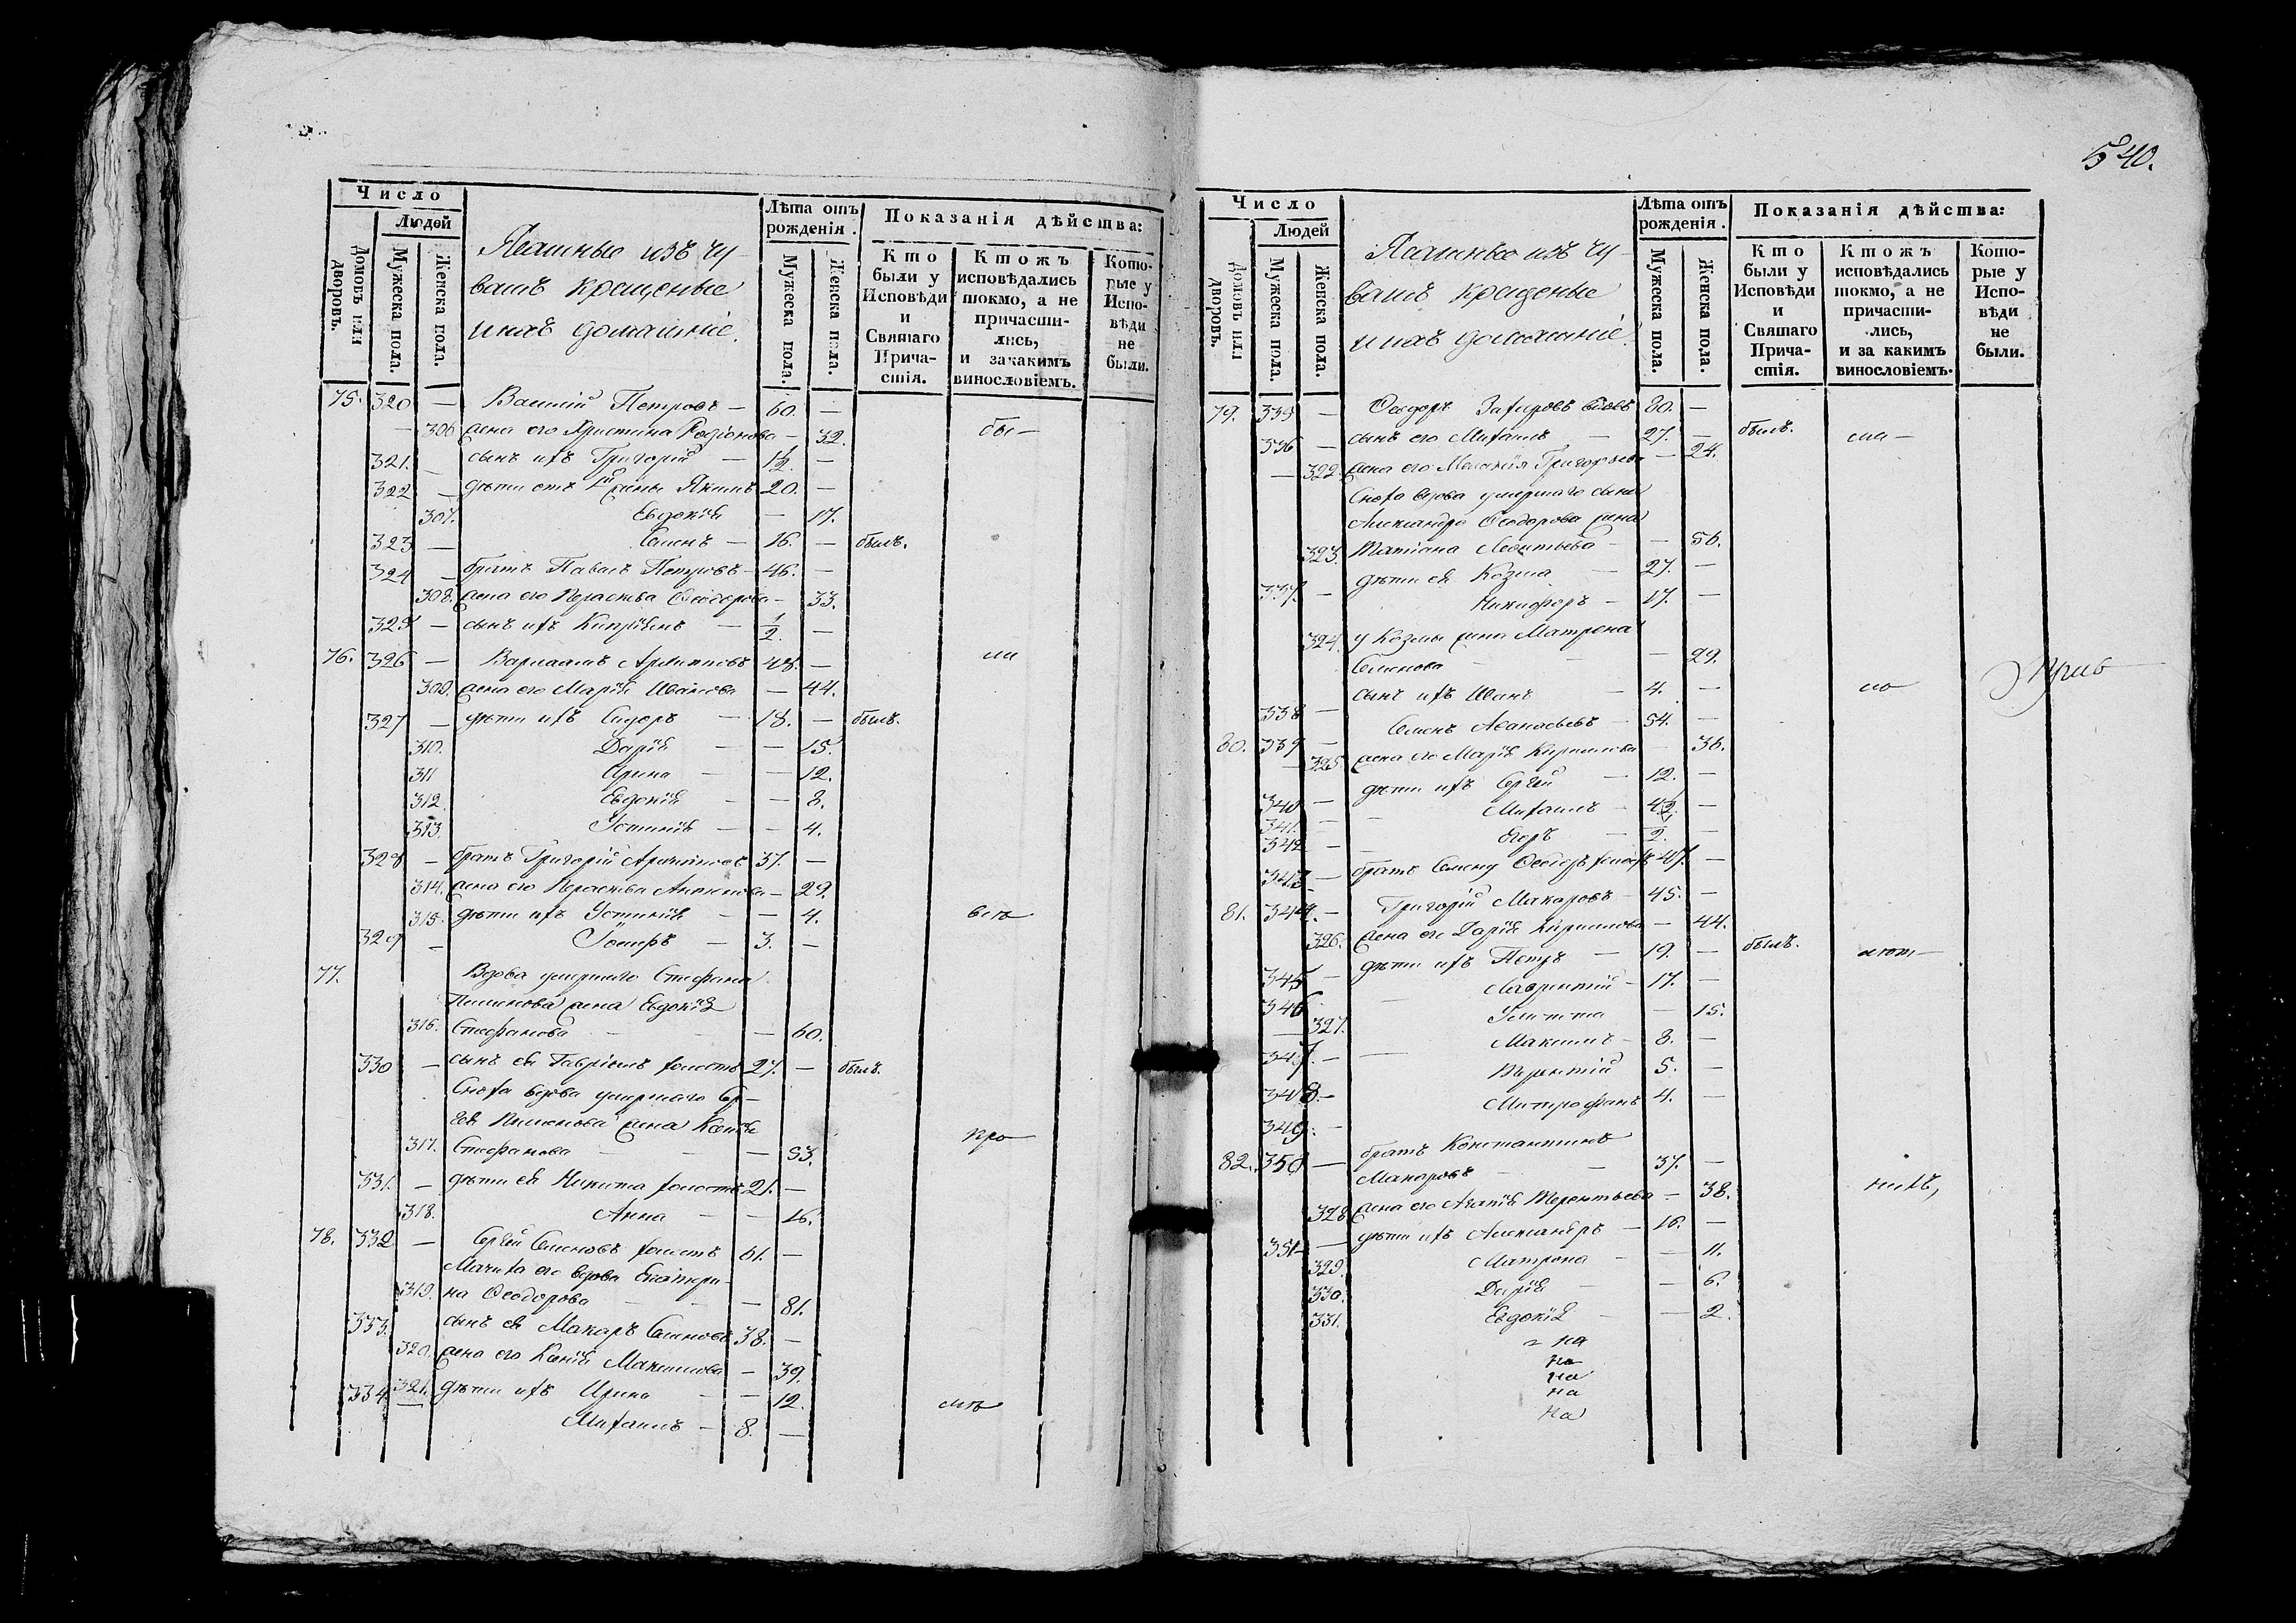 540.
Число
Людей
Домовъ или дворовъ.
Мужеска пола.
Женска пола.
Ясашные изъ чу-
вашъ крещеные
и ихъ домашніе.
Лѣта отъ рожденія.
Мужеска пола.
Женска пола.
Показанія дѣйства:
Кто были у Исповѣди и Святаго Причастія.
Ктожъ исповѣдались токмо, а не причастились, и закакимъ винословіемъ.
Которые у Исповѣди не были.
75. 320 — Василій Петровъ — 60. —
— 306 жена его Христина Родіонова — 32. бы-
321. — сынъ ихъ Григорій — 1/2. —
322 — дѣти отъ 1й жены Якимъ 20. —
307. Евдокія — 17.
323 — Семенъ — 16. — былъ.
324 — братъ Павелъ Петровъ — 46. —
308. жена его Параскева Ѳеодорова — 33.
325 — сынъ ихъ Кипріянъ — 1/2. —
76. 326 — Варлаамъ 48. — ли
309. жена его Марія Иванова — 44.
327 — дѣти ихъ Сидоръ — 18. — былъ.
310. Дарія — — 15.
311 Арина — — 12.
312. Евдокія — — 8.
313. Устинія — — 4.
328 — братъ Григорій 37. —
314. жена его Параскева Антипова — 29.
315. дѣти ихъ Устинія — — 4. всѣ
329 — 3. —
77. Вдова умершаго Стефана
Пименова жена Евдокія
316. Стефанова — — 60.
330 — сынъ ея Гавріилъ холостъ 27. — былъ.
Сноха вдова умершаго Сер-
гея Пименова жена Ксенія
317. Стефанова — — — 53. про
331. — дѣти ея Никита холостъ 21. —
318. Анна — — 16.
78. 332 — Сергей Семеновъ холостъ 61. —
Мачиха его вдова Екатери-
319. на Ѳеодорова — — — 81.
333. сынъ ея Макаръ Семеновъ 38. —
320. жена его Ксенія Максимова — 39.
334 321. дѣти ихъ Ирина — — 12.
Михаилъ — 8. —
Число
Людей
Домовъ или дворовъ.
Мужеска пола.
Женска пола.
Ясашные изъ чу-
вашъ крещеные
и ихъ домашніе.
Лѣта отъ рожденія.
Мужеска пола.
Женска пола.
Показанія дѣйства:
Кто были у Исповѣди и Святаго Причастія.
Ктожъ исповѣдались токмо, а не причастились, и за какимъ винословіемъ.
Которые у Исповѣди не были.
79. 335 — Ѳеодоръ Захаровъ вдовъ 80. —
336 — сынъ его Михаилъ — 27. — былъ.
— 322. жена его Меланія Григорьева — 24.
Сноха вдова умершаго сына
Александра Ѳеодорова жена
323. Татіана Леонтьева — — 56.
337. — дѣти ея Козма — 27. —
Никифоръ — 17. —
324. у Козмы жена Матрена
Семенова — — — 29.
338 — сынъ ихъ Иванъ — 4. — по
80. 339 — Семенъ Аѳанасьевъ — 54. —
— 325. жена его Марія Кирилова — 36.
340 — дѣти ихъ Сергей — 12. —
341. — — Михаилъ — 4. —
342 — — Егоръ — 2. —
343 — братъ Семену Ѳеодоръ холостъ 47. —
81. 344. — Григорій Макаровъ — 45. —
326. жена его Дарія Кирилова — 44.
345 — дѣти ихъ Петръ — 19. — былъ.
346 — Лаврентій — 17. —
— 327. — 15.
347. — — Максимъ — 8. —
348. — Терентій 5. —
349. — Митрофанъ 4. —
82. 350 — братъ Константинъ
Макаровъ — — 37. —
328 жена его Агапія Терентьева — 38.
351 — дѣти ихъ Александръ — 16. —
329. Матрона — — 11.
330. Дарія — — 6.
331. Евдокія — — 2.
на
на
на
на
на